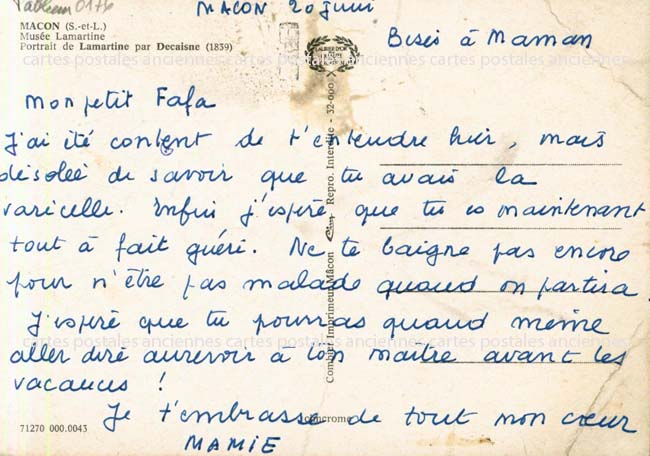 Tableau 0176
MACON 20 juin
MACON (S.-et-L.)
Musée Lamartine
Portrait de Lamartine par Decaisne (1839)
Bises à Maman
cartes postales anciennes cartes postales anciennes cartes postales anciennes
mon petit Fafa
J'ai été content de t'entendre hier, mais
désolée de savoir que tu avais la
varicelle. Enfin j'espère que tu es maintenant
tout à fait guéri. Ne te baigne pas encore
pour n'être pas malade quand on partira.
J'espère que tu pourras quand même
cartes postales anciennes cartes postales anciennes cartes postales anciennes
aller dire aurevoir à ton maître avant les
vacances !
Je t'embrasse de tout mon cœur
MAMIE
71270 000.0043
Combier Imprimeur Mâcon Cim Repro. Interdite - 32-000 X